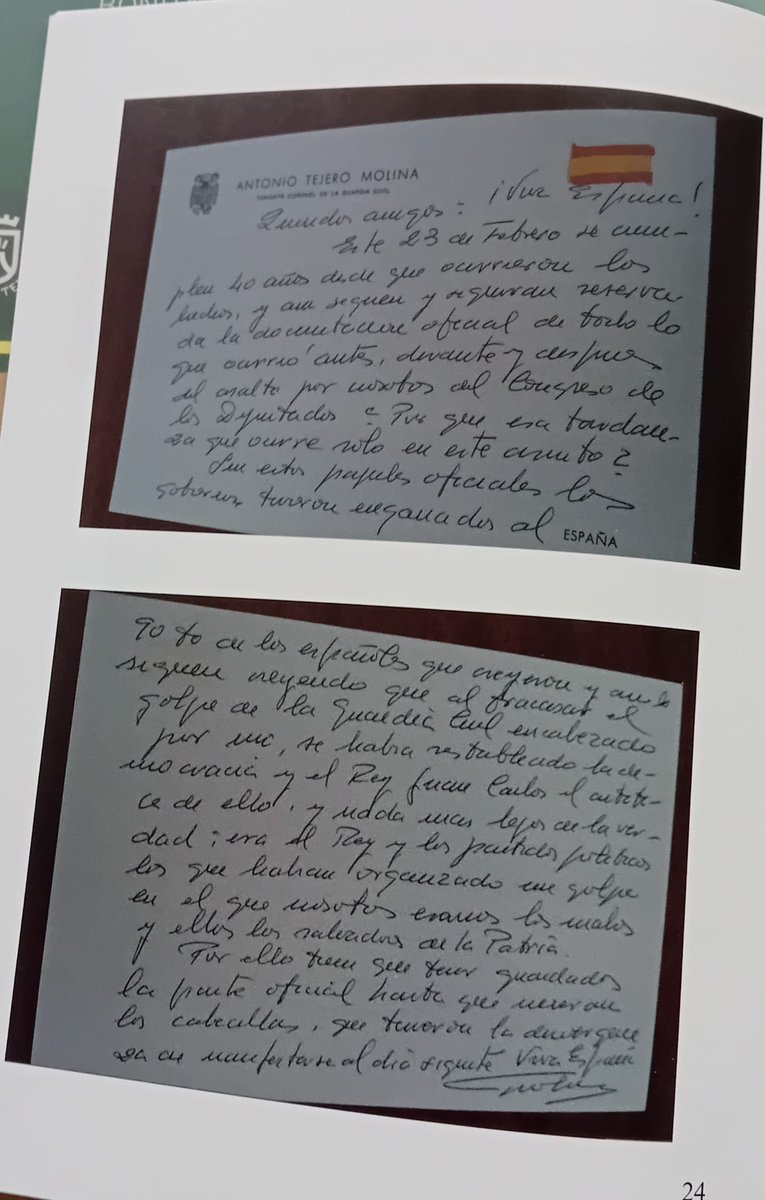 ANTONIO TEJERO MOLINA
TENIENTE CORONEL DE LA GUARDIA CIVIL
Queridos amigos: ¡Viva España!
Este 23 de Febrero se cum-
plen 40 años desde que ocurrieron los
hechos, y aun siguen y seguiran reserva-
da la documentacion oficial de todo lo
que ocurrió antes, durante y despues
del asalto por nosotros del Congreso de
los Diputados ¿Por que esa tardan-
za que ocurre solo en este asunto?
Sin estos papeles oficiales los
gobiernos tuvieron engañados al
ESPAÑA
90 % de los españoles que creyeron y aun
siguen creyendo que al fracasar el
golpe de la Guardia Civil encabezado
por mi, se habia restablecido la de-
mocracia y el Rey Juan Carlos el artifi-
ce de ello, y nada mas lejos de la ver-
dad; era el Rey y los partidos politicos
los que habian organizado un golpe
en el que nosotros eramos los malos
y ellos los salvadores de la Patria.
Por ello tienen que tener guardados
la parte oficial hasta que mueran
los cabecillas, que tuvieron la desvergüen-
za de manifestarse al dia siguiente Viva España
24